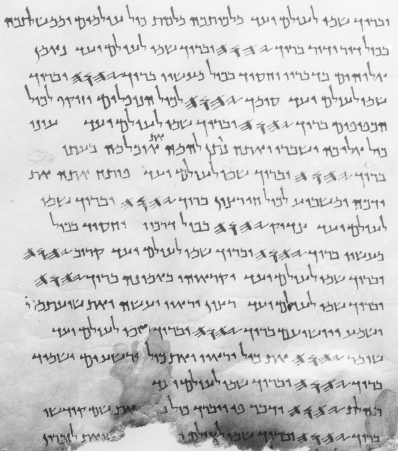 וברוך שמו לעולם ועד מלכותכה מלכות כול עולמים וממשלתכה
בכול דור ודור ברוך 𐤉𐤄𐤅𐤄 וברוך שמו לעולם ועד נאמן
אלוהים בדבריו וחסיד בכול מעשיו ברוך 𐤉𐤄𐤅𐤄 וברוך
שמו לעולם ועד סומך 𐤉𐤄𐤅𐤄 לכול הנופלים וזוקף לכול
הכפופים ברוך 𐤉𐤄𐤅𐤄 וברוך שמו לעולם ועד עיני
כול אליכה ישברו ואתה נותן להמה את אוכלמה בעתו
ברוך 𐤉𐤄𐤅𐤄 וברוך שמו לעולם ועד פותח אתה את
ידכה ומשביע לכול חי רצון ברוך 𐤉𐤄𐤅𐤄 וברוך שמו
לעולם ועד צדיק 𐤉𐤄𐤅𐤄 בכול דרכיו וחסיד בכול
מעשיו ברוך 𐤉𐤄𐤅𐤄 וברוך שמו לעולם ועד קרוב 𐤉𐤄𐤅𐤄
וברוך שמו לעולם ועד יקראוהו באמונה ברוך 𐤉𐤄𐤅𐤄
וברוך שמו לעולם ועד רצון יראיו יעשה ואת שועתמה
ישמע ויושיעם ברוך 𐤉𐤄𐤅𐤄 וברוך שמו לעולם ועד
שומר 𐤉𐤄𐤅𐤄 את כול יראיו ואת כול רשעים ישמיד
ברוך 𐤉𐤄𐤅𐤄 וברוך שמו לעולם ועד
תהלת 𐤉𐤄𐤅𐤄 ידבר פי ויברך כול את שם קודשו
ברוך 𐤉𐤄𐤅𐤄 וברוך שמו לעולם ו זואת לזכרון